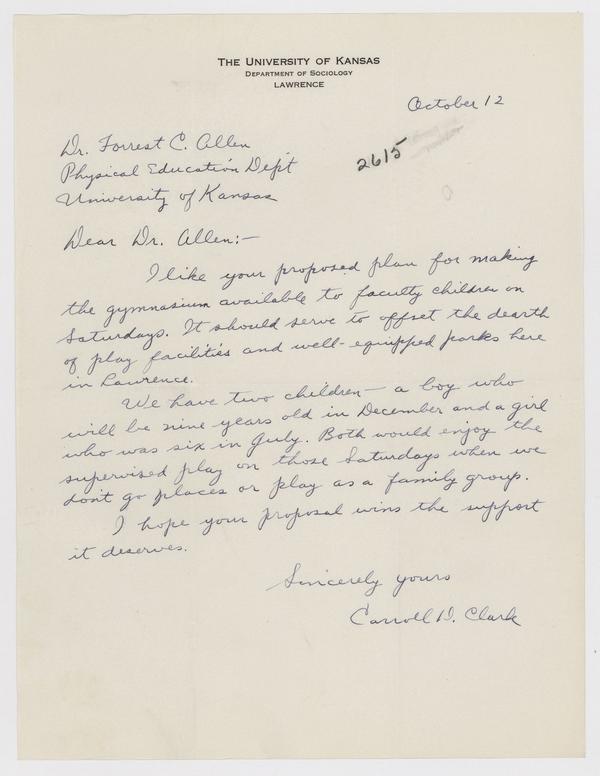 THE UNIVERSITY OF KANSAS
DEPARTMENT OF SOCIOLOGY
LAWRENCE
October 12
Dr. Forrest C. Allen
2615
Physical Education Dep't
University of Kansas
Dear Dr. Allen:—
I like your proposed plan for making
the gymnasium available to faculty children on
Saturdays. It should serve to offset the dearth
of play facilities and well-equipped parks here
in Lawrence.
We have two children — a boy who
will be nine years old in December and a girl
who was six in July. Both would enjoy the
supervised play on those Saturdays when we
don't go places or play as a family group.
I hope your proposal wins the support
it deserves.
Sincerely yours
Carroll D. Clark